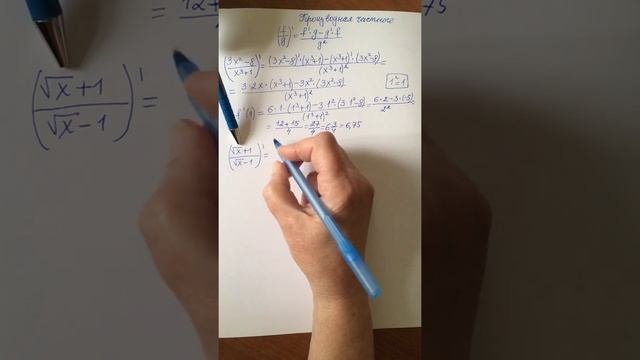 Производная частного
(f/g)' = (f'·g - g'·f)/g²
((3x²-8)/(x³+1))' = ((3x²-8)'·(x³+1) - (x³+1)'·(3x²-8))/(x³+1)² =
= (3·2x·(x³+1) - 3x²·(3x²-8))/(x³+1)² 1²=1
f'(1) = (6·1·(1³+1) - 3·1²·(3·1²-8))/(1³+1)² = (6·2-3·(-5))/2²
= (12+15)/4 = 27/4 = 6 3/4 = 6,75
((√x+1)/(√x-1))' =